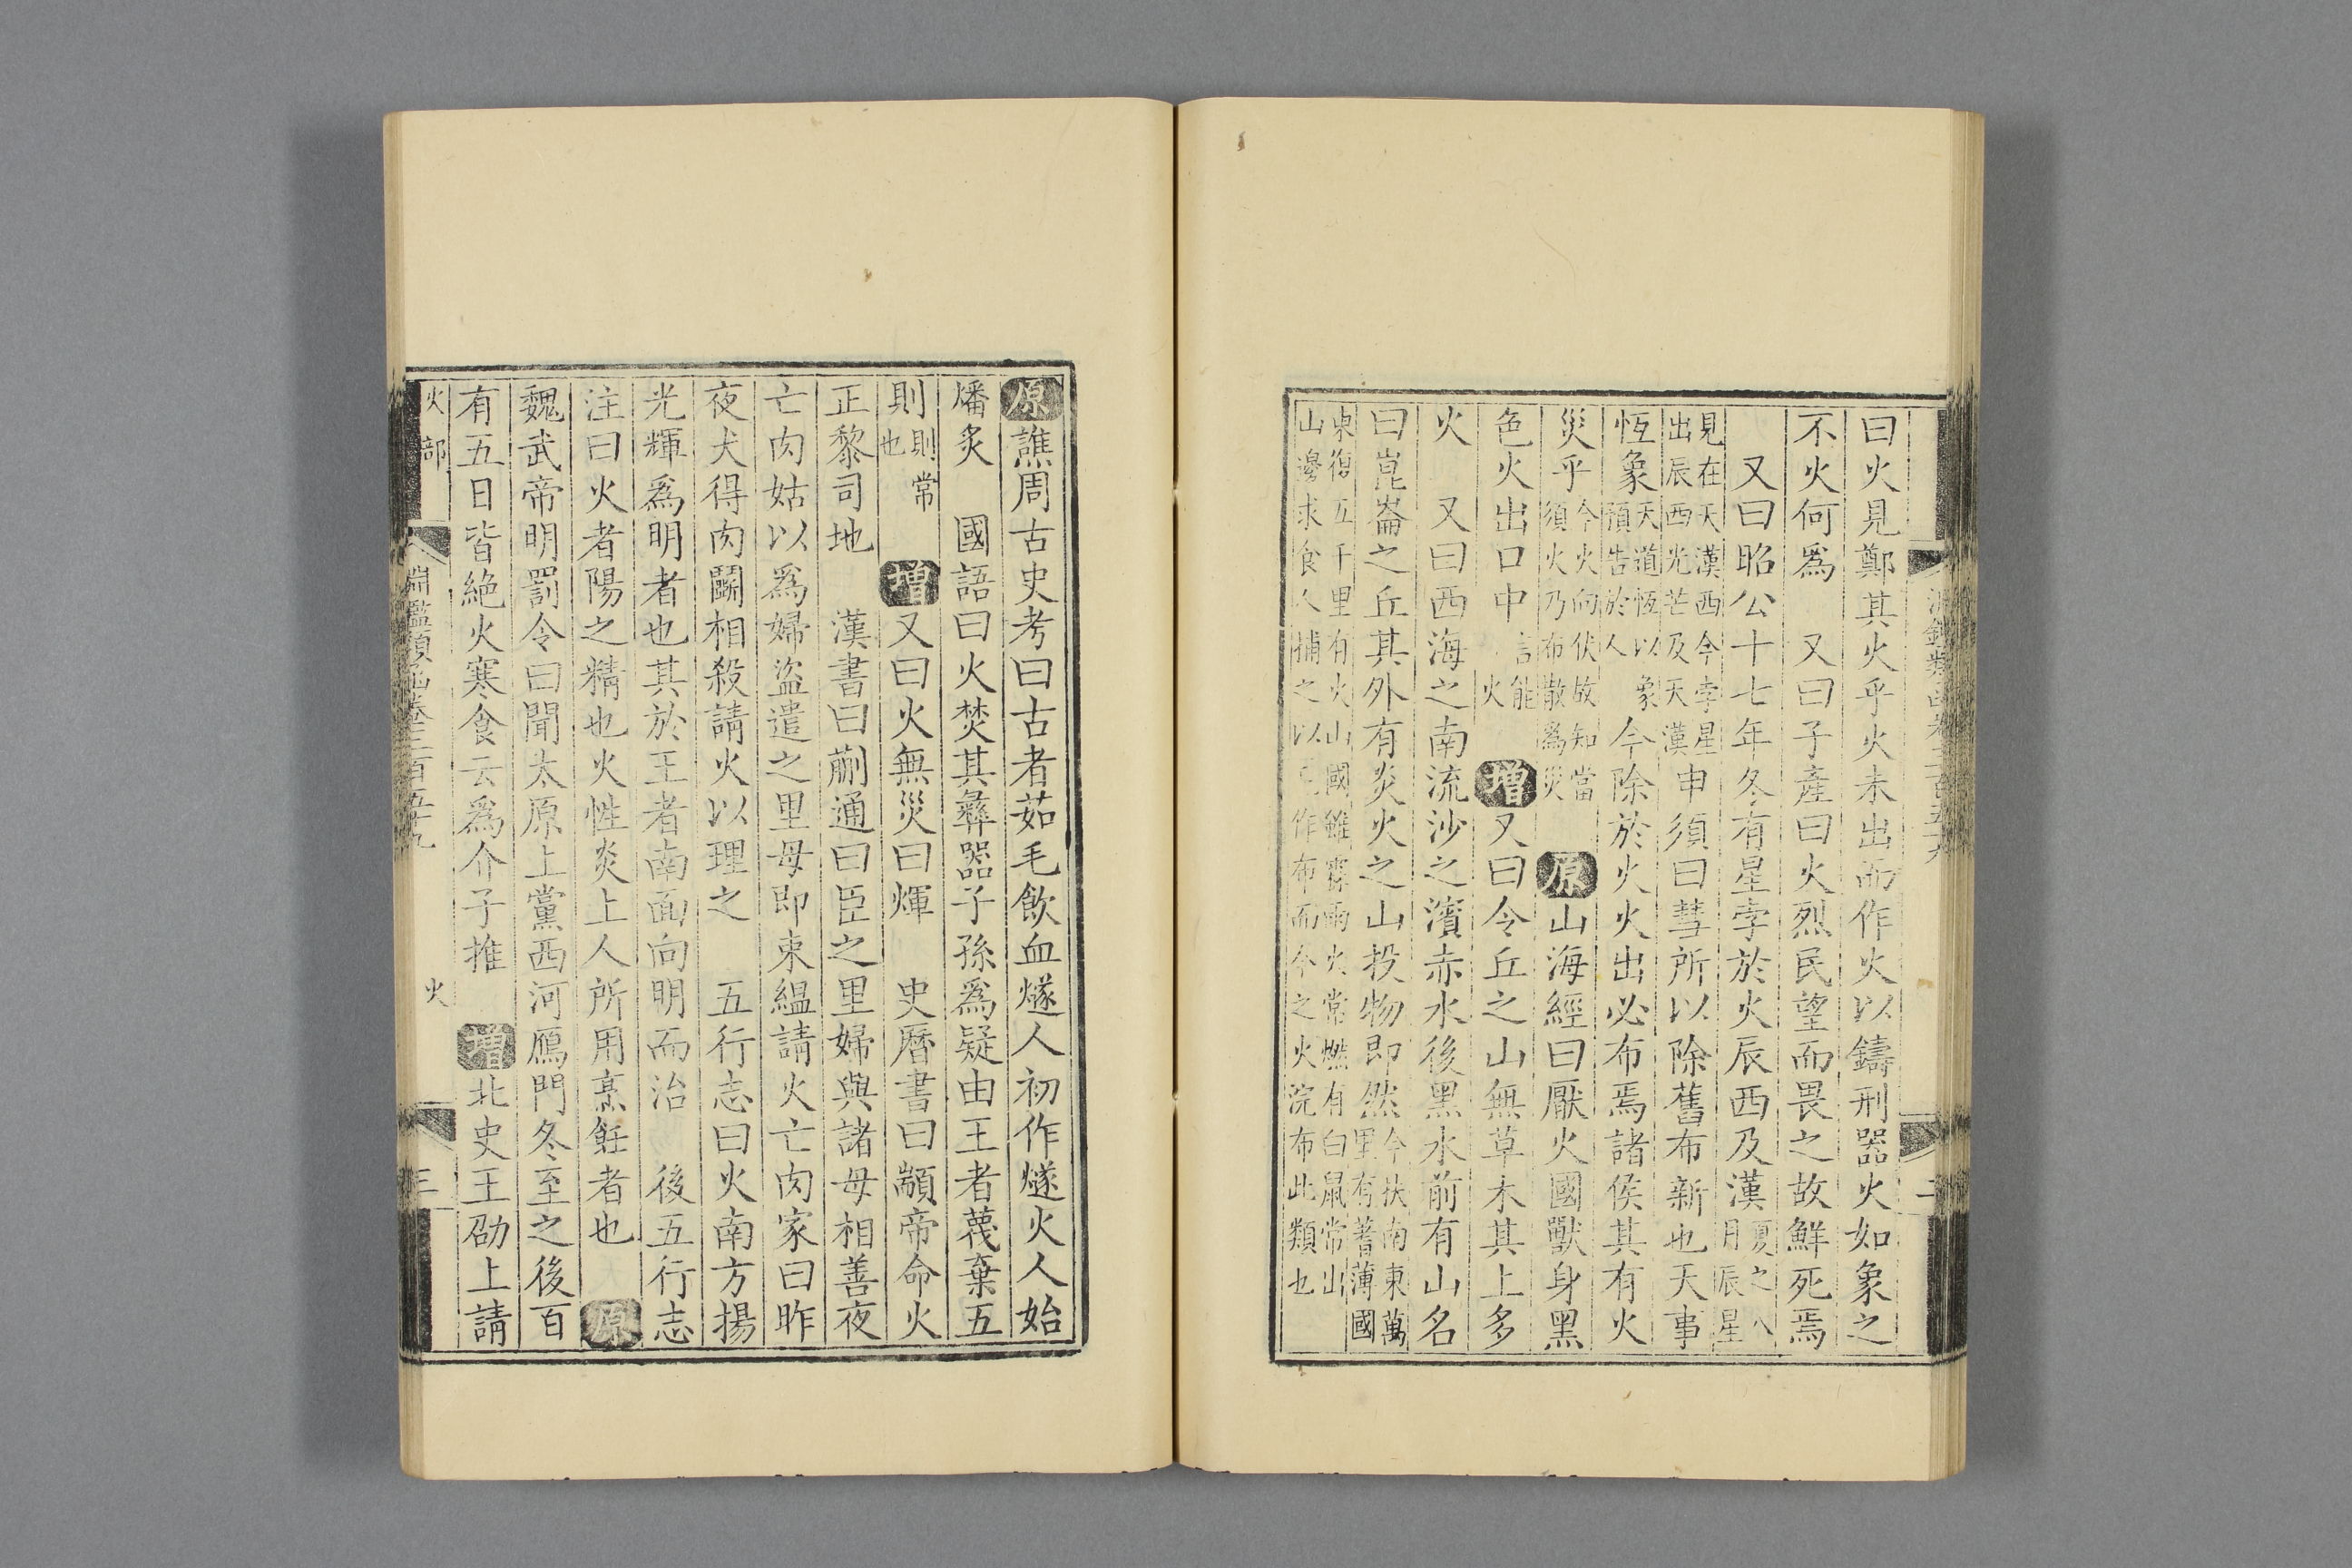 曰火見鄭其火乎火未出而作火以鑄刑器火如象之
不火何爲　又曰子產曰火烈民望而畏之故鮮死焉
又曰昭公十七年冬有星孛於火辰西及漢夏之八月辰星
見在天漢西今孛星出辰西光芒及天漢申須曰彗所以除舊布新也天事
恆象天道恆以象預告於人今除於火火出必布焉諸侯其有火
災乎今火向伏故知當須火乃布散爲災　原山海經曰厭火國獸身黑
色火出口中言能火　增又曰令丘之山無草木其上多
火　又曰西海之南流沙之濱赤水後黑水前有山名
曰崑崙之丘其外有炎火之山投物即然今扶南東萬里有耆薄國
東復五千里有火山國雖霖雨火常燃有白鼠常出山邊求食人捕之以毛作布而今之火浣布此類也
原譙周古史考曰古者茹毛飲血燧人初作燧火人始
燔炙　國語曰火焚其彝器子孫爲疑由王者蔑棄五
則則常也　增又曰火無災曰煇　史曆書曰顓帝命火
正黎司地　漢書曰蒯通曰臣之里婦與諸母相善夜
亡肉姑以爲婦盜遣之里母即束縕請火亡肉家曰昨
夜犬得肉鬭相殺請火以理之　五行志曰火南方揚
光輝爲明者也其於王者南面向明而治　後五行志
注曰火者陽之精也火性炎上人所用烹飪者也　原
魏武帝明罰令曰聞太原上黨西河鴈門冬至之後百
有五日皆絶火寒食云爲介子推　增北史王劭上請
火部　淵鑑類函卷三百五十九　火　三